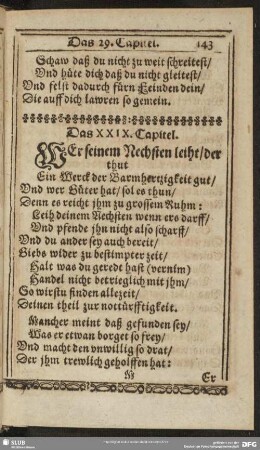 Das 29. Capitel. 143
Schaw daß du nicht zu weit schreitest/
Vnd hüte dich daß du nicht gleitest/
Vnd felst dadurch fürn Feinden dein/
Die auff dich lawren so gemein.
Das XXIX. Capitel.
WEr seinem Nechsten leiht/der
thut
Ein Werck der Barmhertzigkeit gut/
Vnd wer Güter hat/sol es thun/
Denn es reicht jhm zu grossem Ruhm:
Leih deinem Nechsten wenn ers darff/
Vnd pfende jhn nicht also scharff/
Vnd du ander sey auch bereit/
Giebs wider zu bestimpter zeit/
Halt was du geredt hast (vernim)
Handel nicht betrieglich mit jhm/
So wirstu finden allezeit/
Deinen theil zur nottürfftigkeit.
Mancher meint daß gefunden sey/
Was er etwan borget so frey/
Vnd macht den vnwillig so drat/
Der jhm trewlich geholffen hat:
Er
SLUB
DFG